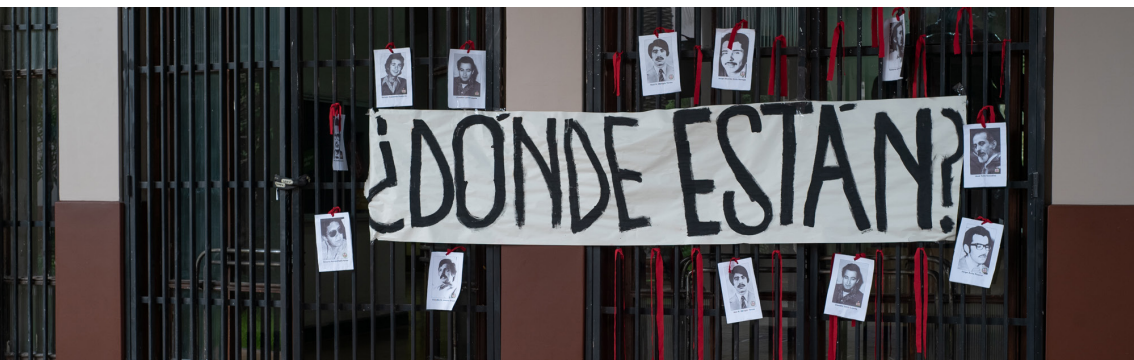 ¿DÓNDE ESTÁN?